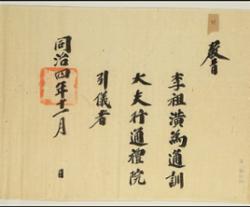 教旨
李祖潢為通訓
大夫行通禮院
引儀者
同治四年十一月 日